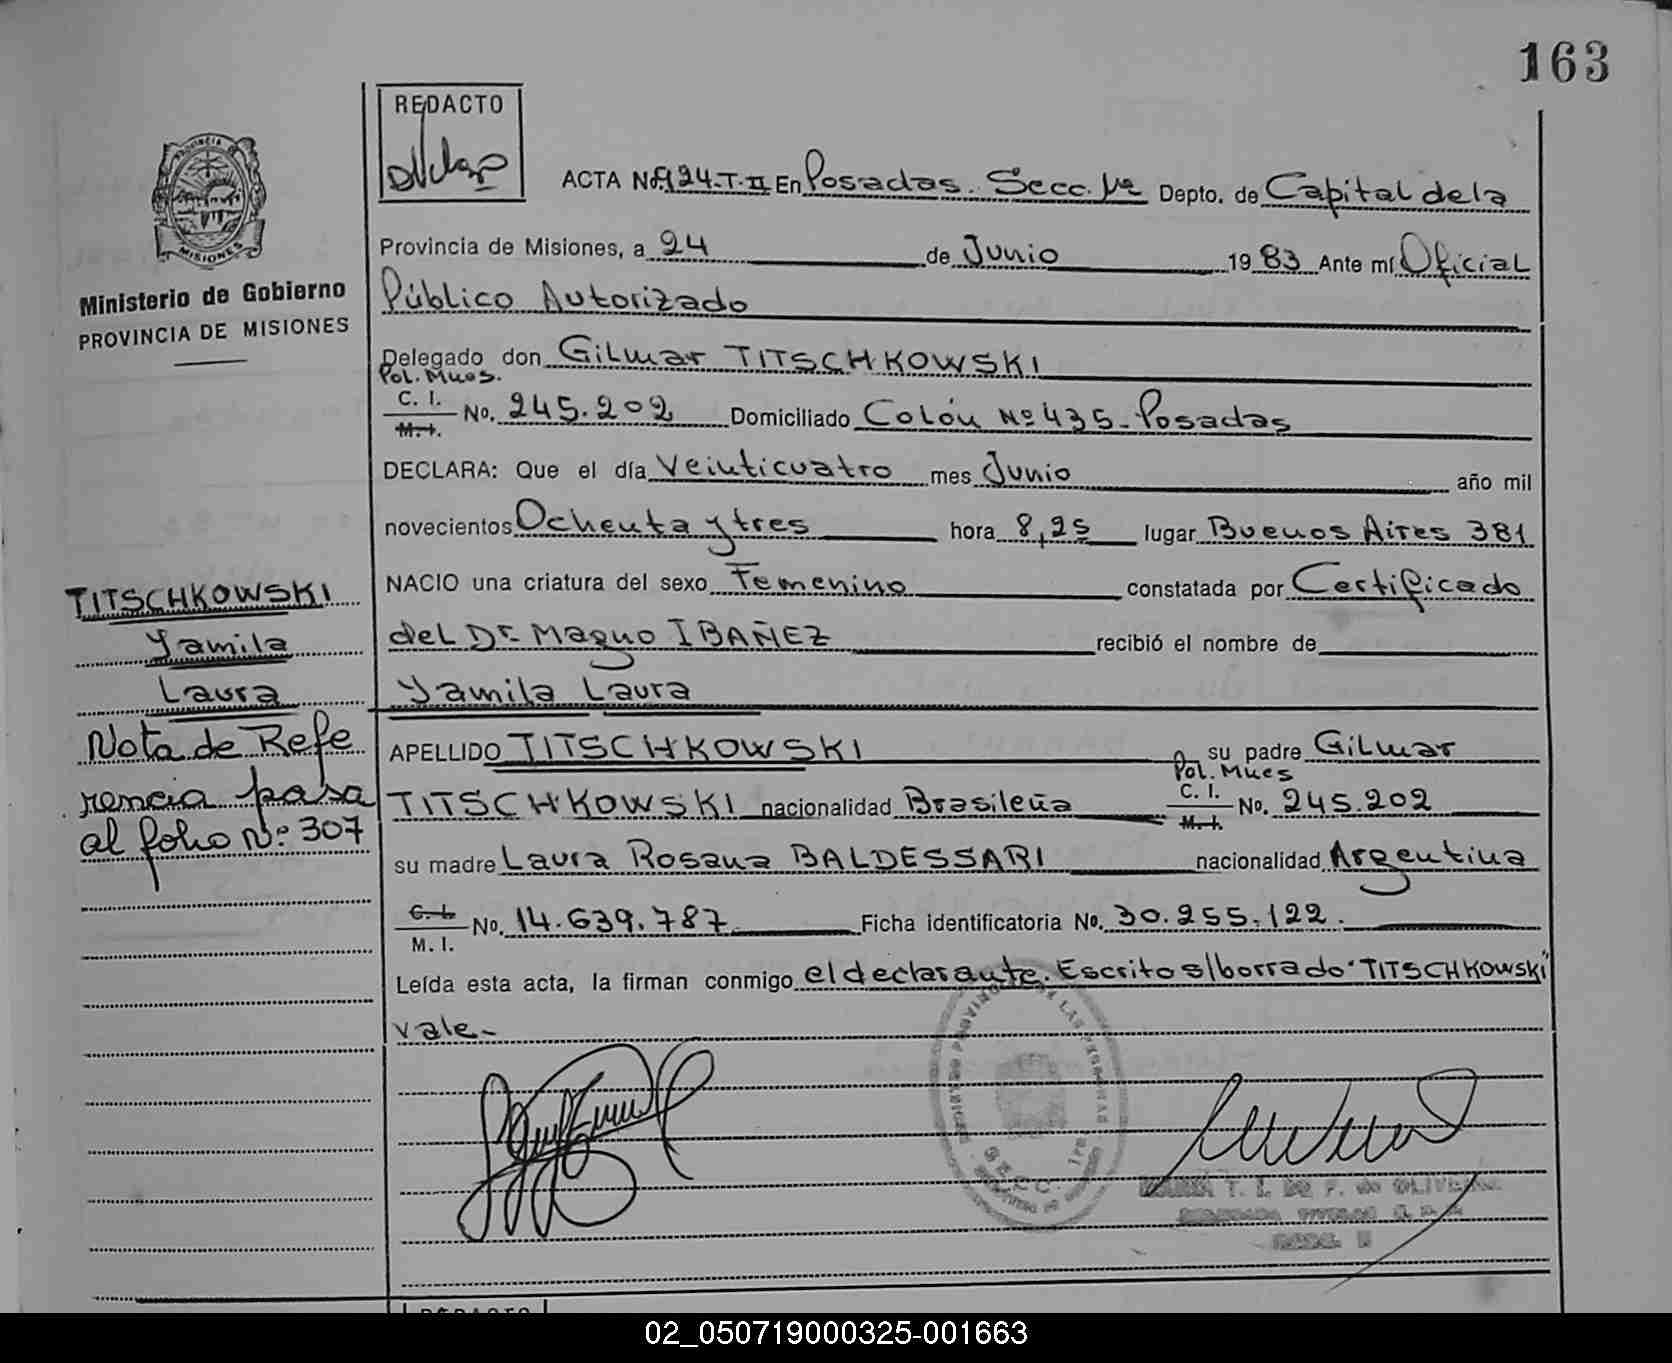 163
REDACTO
PROVINCIA DE
MISIONES
Ministerio de Gobierno
PROVINCIA DE MISIONES
ACTA Nº 924-T-II En Posadas. Secc. 1ª Depto. de Capital de la
Provincia de Misiones, a 24 de Junio 1983 Ante mí Oficial
Público Autorizado
Delegado don Gilmar TITSCHKOWSKI
Pol. Mnes.
C. I.
M. I. No. 245.202 Domiciliado Colón Nº 435-Posadas
DECLARA: Que el día Veinticuatro mes Junio año mil
novecientos Ochenta y tres hora 8,25 lugar Buenos Aires 381
NACIO una criatura del sexo Femenino constatada por Certificado
del Dr. Magno IBAÑEZ recibió el nombre de
Yamila Laura
APELLIDO TITSCHKOWSKI su padre Gilmar
Pol. Mnes
TITSCHKOWSKI nacionalidad Brasileña C. I. M. I. No. 245.202
su madre Laura Rosana BALDESSARI nacionalidad Argentina
C. I.
M. I. No. 14.639.787 Ficha identificatoria No. 30.255.122.
Leída esta acta, la firman conmigo el declarante. Escrito s/borrado "TITSCHKOWSKI"
vale-
TITSCHKOWSKI
Yamila
Laura
Nota de Refe
rencia pasa
al folio Nº 307
SECC. 1ra
T. I. DE F. de OLIVEIRA
REDACTO
02_050719000325-001663